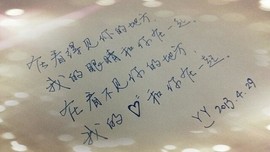 在看得见你的地方
我的眼睛和你在一起
在看不见你的地方
我的♡和你在一起
YY 2013.4.29